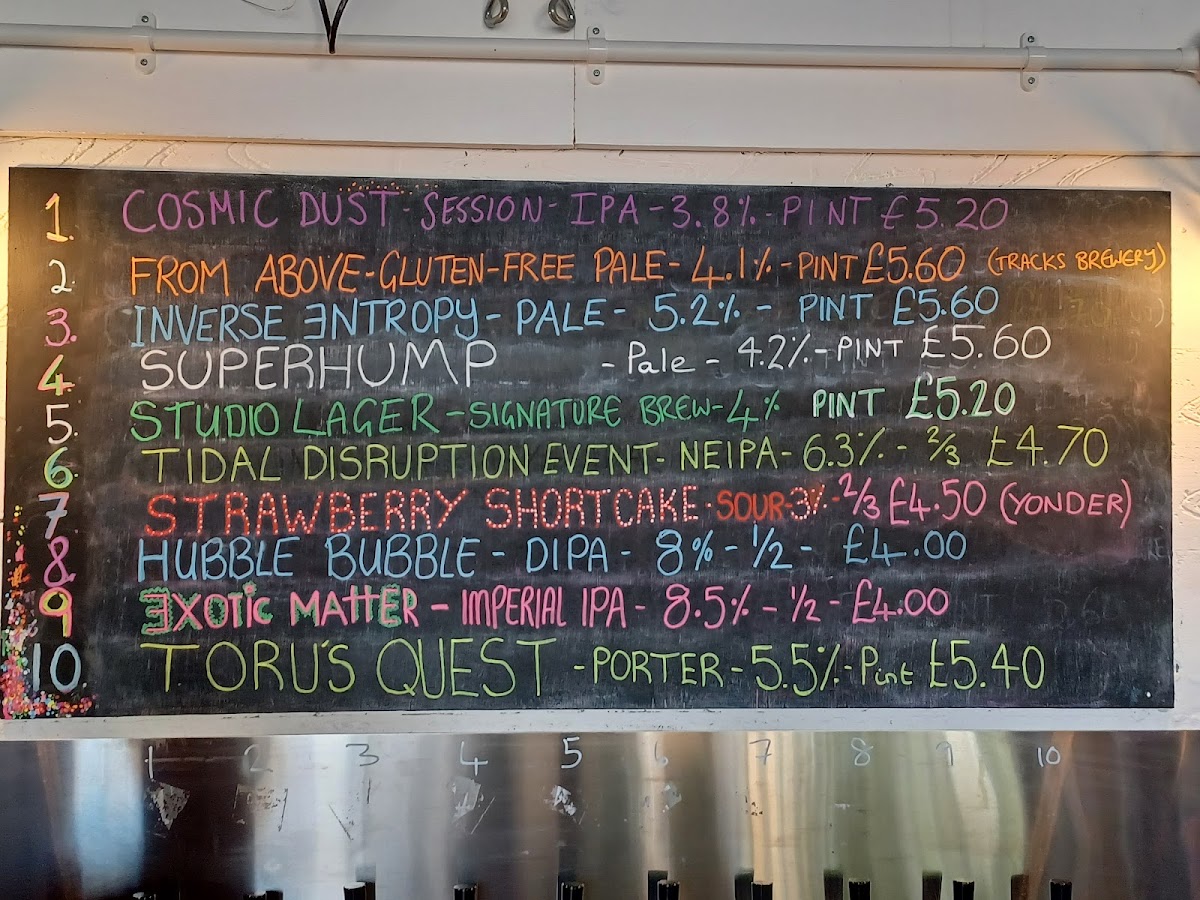 1. COSMIC DUST - SESSION - IPA - 3.8% - PINT £5.20
2. FROM ABOVE - GLUTEN-FREE PALE - 4.1% - PINT £5.60 (TRACKS BREWERY)
3. INVERSE ENTROPY - PALE - 5.2% - PINT £5.60
4. SUPERHUMP - Pale - 4.2% - PINT £5.60
5. STUDIO LAGER - SIGNATURE BREW - 4% PINT £5.20
6. TIDAL DISRUPTION EVENT - NEIPA - 6.3% - 2/3 £4.70
7 STRAWBERRY SHORTCAKE - SOUR - 3% - 2/3 £4.50 (YONDER)
8. HUBBLE BUBBLE - DIPA - 8% - 1/2 - £4.00
9 EXOTIC MATTER - IMPERIAL IPA - 8.5% - 1/2 - £4.00
10. TORU'S QUEST - PORTER - 5.5% - Pint £5.40
1 2 3 4 5 6 7 8 9 10